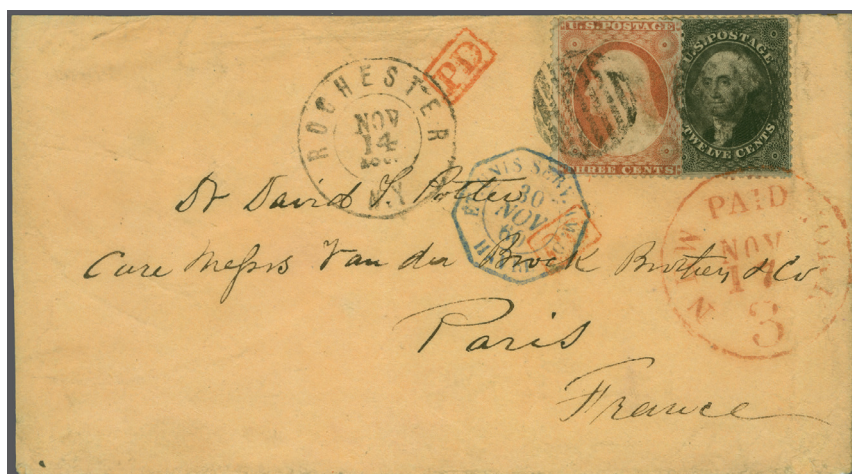 U.S. POSTAGE
THREE CENTS
U.S. POSTAGE
TWELVE CENTS
PD
ROCHESTER
NOV
14
N.Y
30
NOV
60
PD
NEW YORK
PAID
NOV
17
3
Dr David S. Potter
Care Messrs Van der Brock Brothers & Co
Paris
France